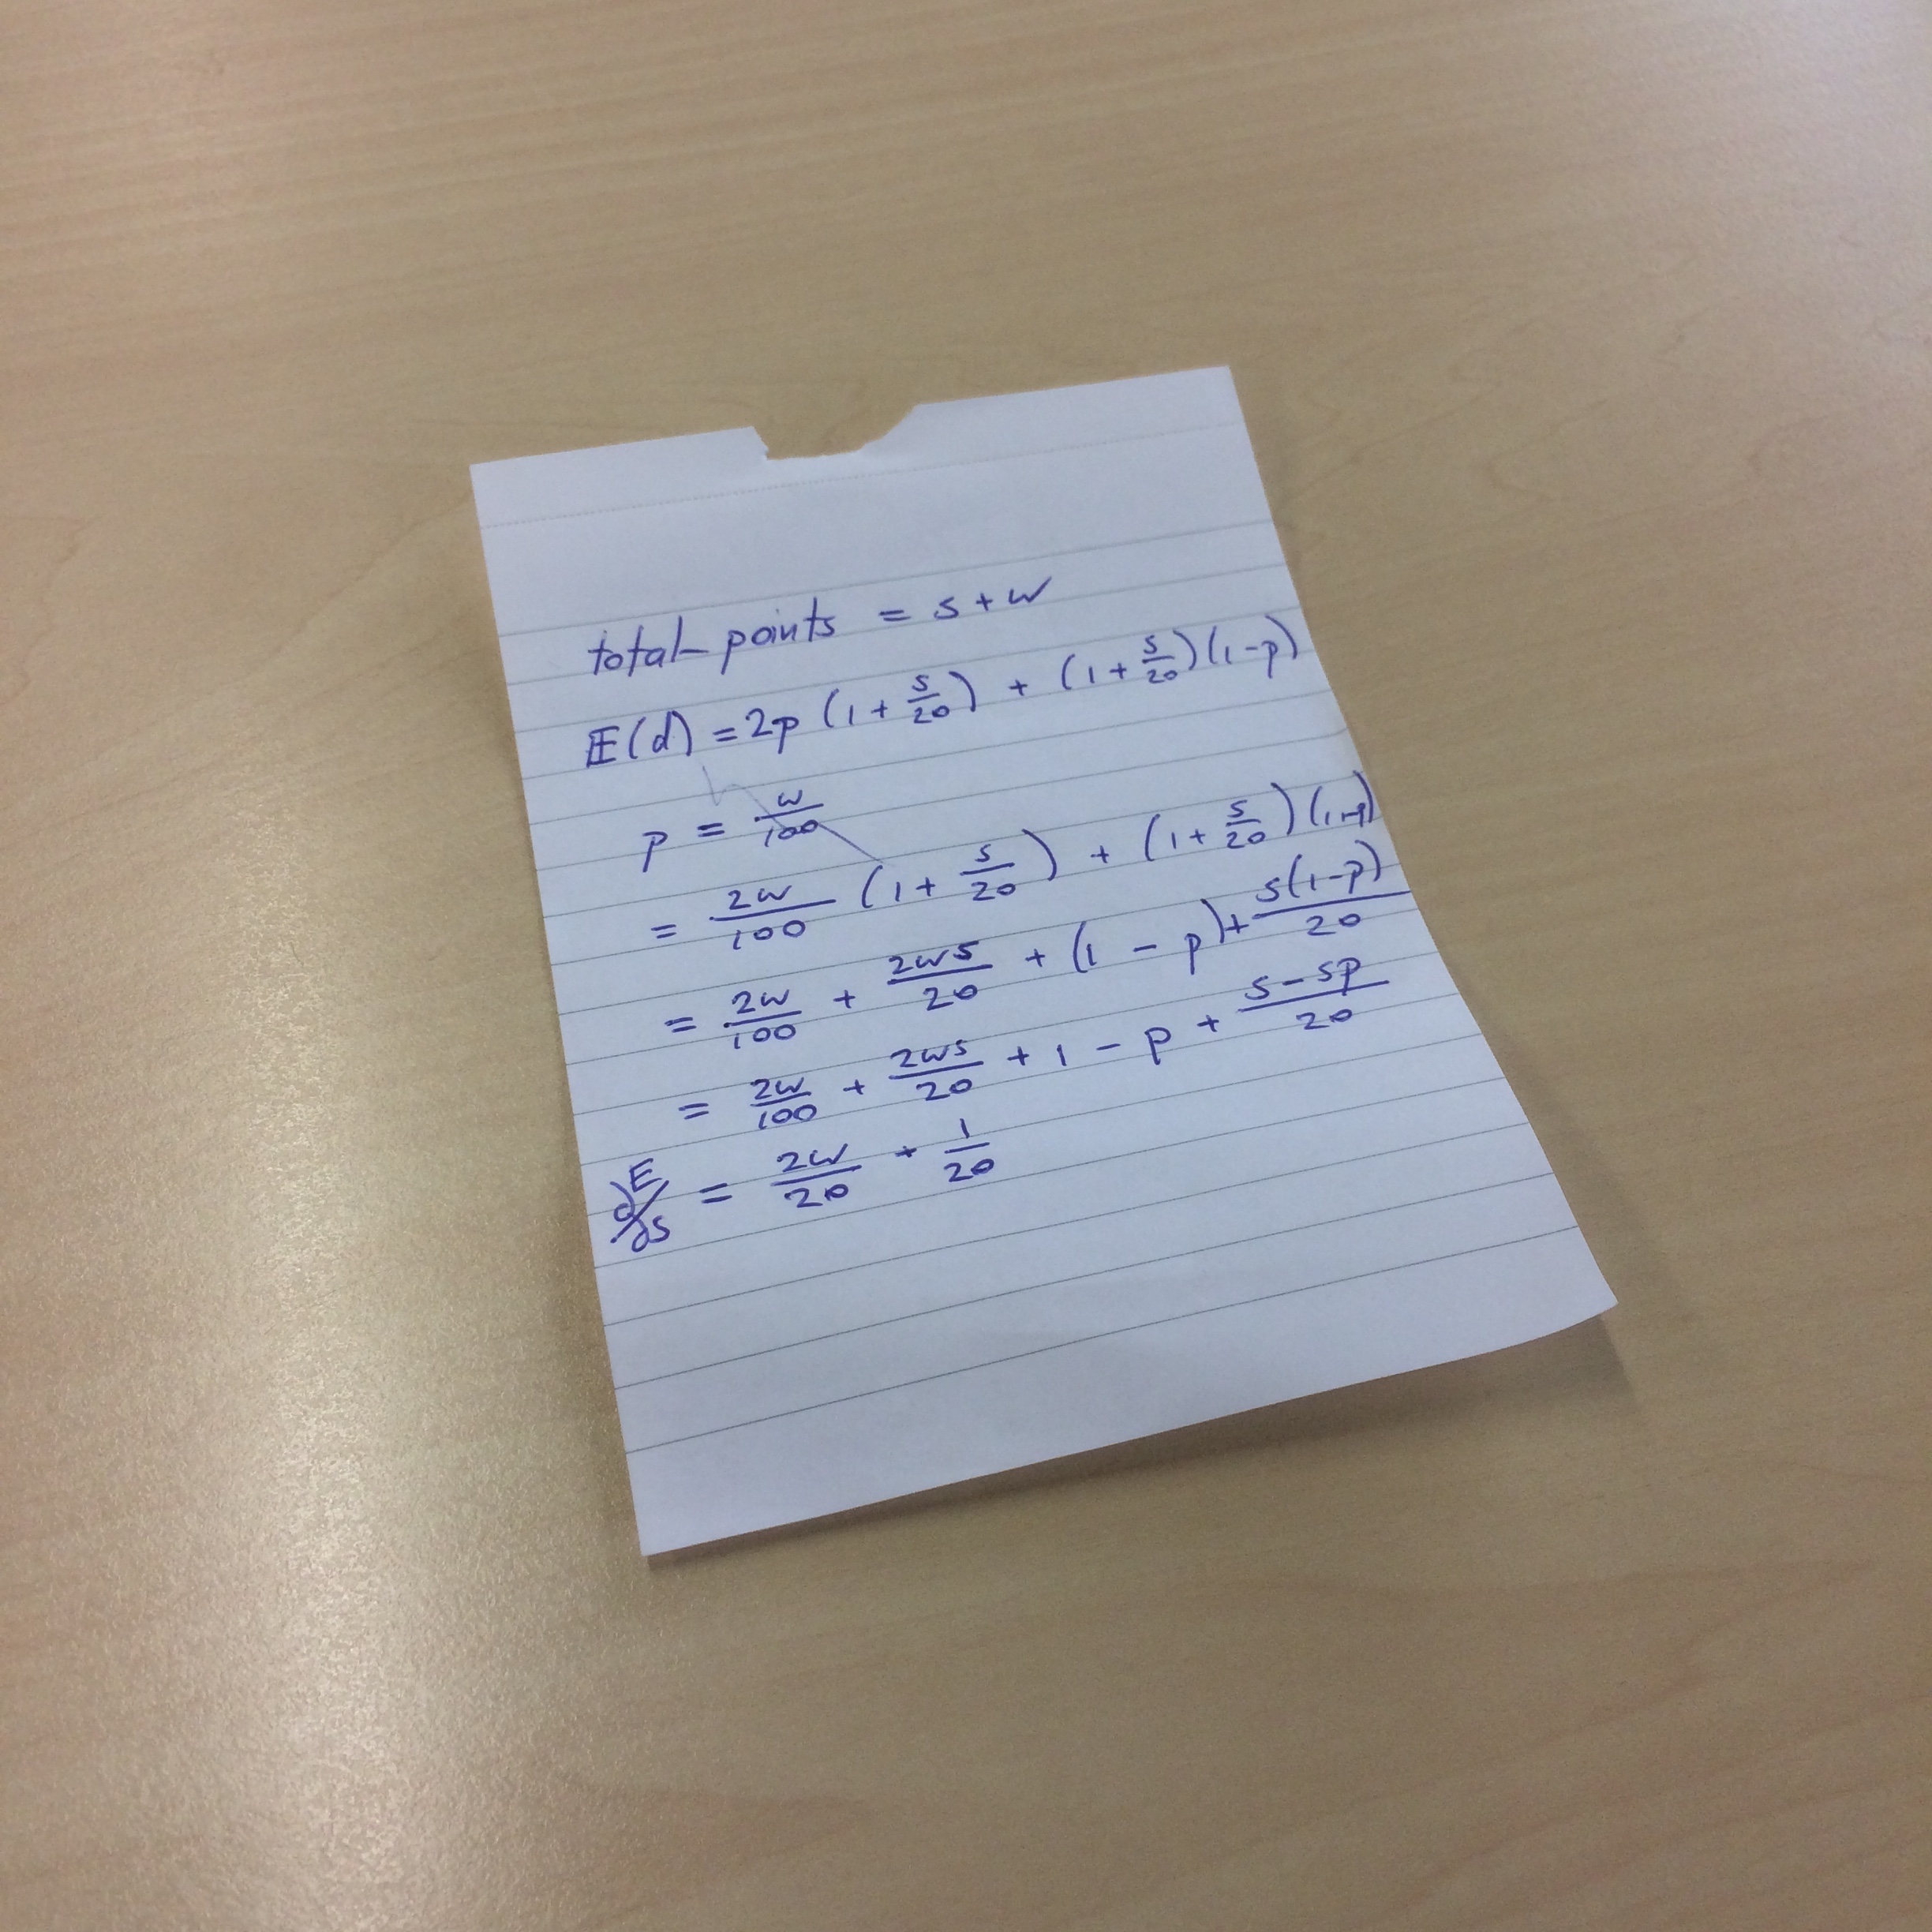 total points = s + w
E(d) = 2p (1 + s/20) + (1 + s/20)(1-p)
p = w/100
= 2w/100 (1 + s/20) + (1 + s/20)(1-p)
= 2w/100 + 2ws/20 + (1 - p) + s(1-p)/20
= 2w/100 + 2ws/20 + 1 - p + s-sp/20
dE/ds = 2w/20 + 1/20